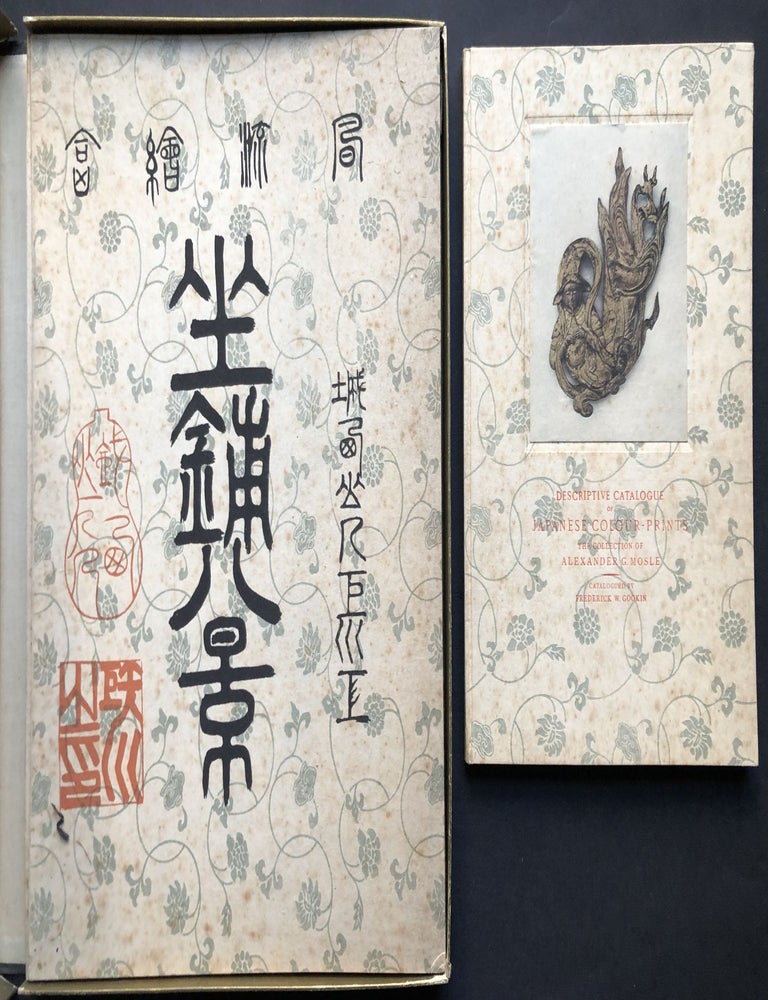 風流繪合
坐鋪八景
城西山人巨川工
DESCRIPTIVE CATALOGUE
OF
JAPANESE COLOUR-PRINTS
THE COLLECTION OF
ALEXANDER G. MOSLE
CATALOGUED BY
FREDERICK W. GOOKIN